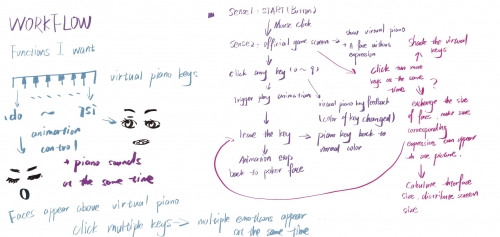 WORKFLOW
Functions I want
virtual piano keys
do ~ si
animation
control
+ piano sounds
at the same time
Faces appear above virtual piano
click multiple keys → multiple emotions appear
at the same time.
Sense1: START (Button)
Mouse click
Sense2: official game screen → show virtual piano
+ a face without
expression
click any key (0 ~ 9)
Trigger play animation
virtual piano key feedback
(color of key changed)
leave the key → piano key back to
normal color
Animation stops
back to poker face
Shade the virtual
keys
click two more
keys at the same
time
?
exchange the size
of faces, make sure
corresponding
expressions can appear
in one picture.
Calculate interface
size, distribute screen
size